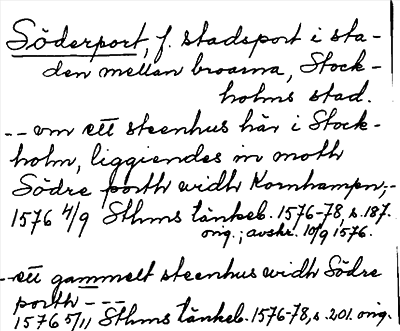 Söderport, f. stadsport i sta-
den mellan broarna, Stock-
holms stad.
-- om ett steenhus här i Stock-
holm, liggiendes in moth
Södre porth widh Kornhampn,-
1576 4/9 Sthms tänkeb. 1576-78, s. 187.
orig.; avskr. 10/9 1576.
--ett gammelt steenhus widh Södre
porth ---
1576 5/11 Sthms tänkeb. 1576-78, s. 201. orig.